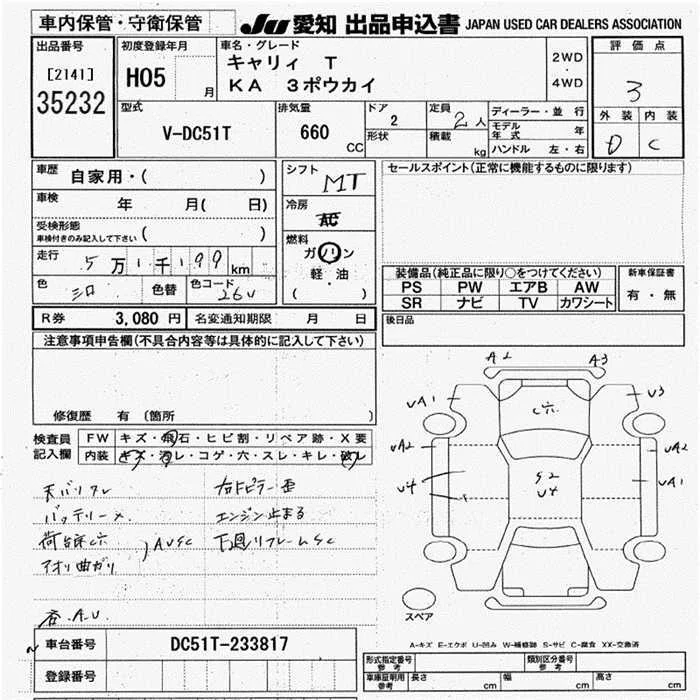 車内保管・守衛保管
JU 愛知 出品申込書 JAPAN USED CAR DEALERS ASSOCIATION
出品番号
[2141]
35232
初度登録年月
H05
月
車名・グレード
キャリィ T
KA 3ポウカイ
2WD
・
4WD
評価点
3
外装 内装
D C
型式
V-DC51T
排気量
660
CC
ドア
2
形状
定員
2人
積載
kg
ディーラー・並行
モデル年式 年
ハンドル 左・右
車歴
自家用・( )
車検
年 月( 日)
受検形態
車検付きのみ記入して下さい ( )
走行
5万1千199km
色
シロ
色替
色コード
26U
シフト
MT
冷房
AC
燃料
ガソリン
軽・油
( )
セールスポイント(正常に機能するものに限ります)
装備品(純正品に限り○をつけてください)
PS PW エアB AW
SR ナビ TV カワシート
新車保証書
有・無
R券 3,080円 名変通知期限 月 日
後日品
注意事項申告欄(不具合内容等は具体的に記入して下さい)
修復歴 有 (箇所 )
検査員
記入欄
FW キズ・飛石・ヒビ割・リペア跡・X要
内装 キズ・汚レ・コゲ・穴・スレ・キレ・破レ
天バリワレ
バッテリーメ
荷台床C穴
アオリ曲ガリ
AUSC
各A.U
右ドピラー歪
エンジン止まる
下廻リフレームSC
A2
A3
UA1
U3
C穴
UA2
UA2
U4
S2
U4
UA1
スペア
A-キズ E-エクボ U-凹み W-補修跡 S-サビ C-腐食 XX-交換済
車台番号
DC51T-233817
登録番号
形式指定番号
参考
類別区分番号
参考
車庫証明用
参考
長さ cm
幅 cm
高さ cm